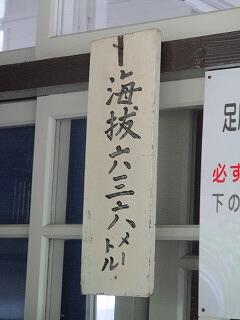 海抜六三六メートル.
足
必ず
下の